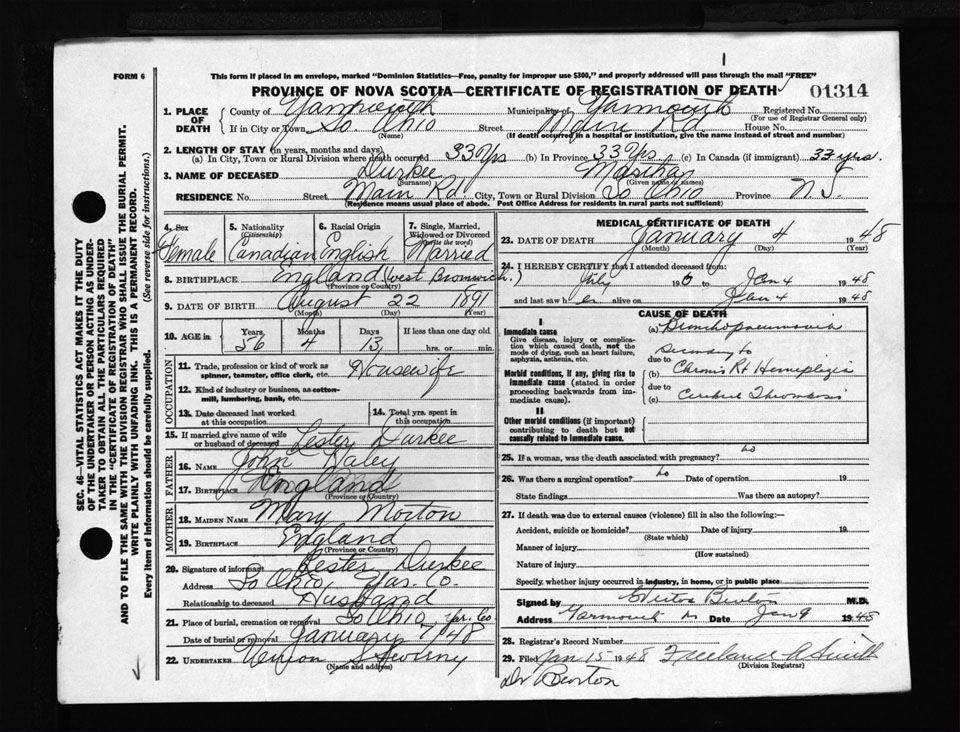 FORM 6
This form if placed in an envelope, marked "Dominion Statistics—Free, penalty for improper use $300," and properly addressed will pass through the mail "FREE"
PROVINCE OF NOVA SCOTIA—CERTIFICATE OF REGISTRATION OF DEATH
01314
1. PLACE OF DEATH
County of Yarmouth Municipality of Yarmouth Registered No.
(For use of Registrar General only)
If in City or Town So. Ohio Street Main Rd. House No.
(Name) (If death occurred in a hospital or institution, give the name instead of street and number)
2. LENGTH OF STAY (in years, months and days)
(a) In City, Town or Rural Division where death occurred 33 Yrs (b) In Province 33 Yrs (c) In Canada (if immigrant) 33 yrs.
3. NAME OF DECEASED Durkee Martha
(Surname) (Given name or names)
RESIDENCE No. Street Main Rd. City, Town or Rural Division So Ohio Province N.S
(Residence means usual place of abode. Post Office Address for residents in rural parts not sufficient)
4. Sex Female
5. Nationality (Citizenship) Canadian
6. Racial Origin English
7. Single, Married, Widowed or Divorced (Write the word) Married
8. BIRTHPLACE England (West Bromwich.)
(Province or Country)
9. DATE OF BIRTH August 22 1891
(Month) (Day) (Year)
10. AGE in Years 56 Months 4 Days 13 If less than one day old hrs. or min.
OCCUPATION
11. Trade, profession or kind of work as spinner, teamster, office clerk, etc. Housewife
12. Kind of industry or business, as cotton-mill, lumbering, bank, etc.
13. Date deceased last worked at this occupation
14. Total yrs. spent in this occupation
15. If married give name of wife or husband of deceased Lester Durkee
FATHER
16. NAME John Haley
17. BIRTHPLACE England
(Province or Country)
MOTHER
18. MAIDEN NAME Mary Morton
19. BIRTHPLACE England
(Province or Country)
20. Signature of informant Lester Durkee
Address So Ohio, Yar. Co.
Relationship to deceased Husband
21. Place of burial, cremation or removal So Ohio Yar. Co
Date of burial or removal January 7/48
22. UNDERTAKER Vernon
(Name and address)
MEDICAL CERTIFICATE OF DEATH
23. DATE OF DEATH January 4 1948
(Month) (Day)
24. I HEREBY CERTIFY that I attended deceased from:
July to Jan 4 1948
and last saw her alive on Jan 4 1948
CAUSE OF DEATH
I
Immediate cause
Give disease, injury or complication which caused death, not the mode of dying, such as heart failure, asphyxia, asthenia, etc.
(a) Bronchopneumonia
Secondary to
due to
Morbid conditions, if any, giving rise to immediate cause (stated in order proceeding backwards from immediate cause).
(b) Chronic Rt Hemiplegia
due to
(c) Cerebral Thrombosis
II
Other morbid conditions (if important) contributing to death but not causally related to immediate cause.
25. If a woman, was the death associated with pregnancy? no
26. Was there a surgical operation? no Date of operation 19
State findings Was there an autopsy?
27. If death was due to external causes (violence) fill in also the following:—
Accident, suicide or homicide? Date of injury 19
(State which)
Manner of injury
(How sustained)
Nature of injury
Specify, whether injury occurred in industry, in home, or in public place
Signed by Burton M.D.
Address Yarmouth Date Jan 9 1948
28. Registrar's Record Number
29. Filed Jan 15 1948 Freelance A Smith
(Division Registrar)
Dr Burton
SEC. 46—VITAL STATISTICS ACT MAKES IT THE DUTY
OF THE UNDERTAKER OR PERSON ACTING AS UNDER-
TAKER TO OBTAIN ALL THE PARTICULARS REQUIRED
IN THE "CERTIFICATE OF REGISTRATION OF DEATH"
AND TO FILE THE SAME WITH THE DIVISION REGISTRAR WHO SHALL ISSUE THE BURIAL PERMIT.
WRITE PLAINLY WITH UNFADING INK. THIS IS A PERMANENT RECORD.
Every item of information should be carefully supplied. (See reverse side for instructions.)